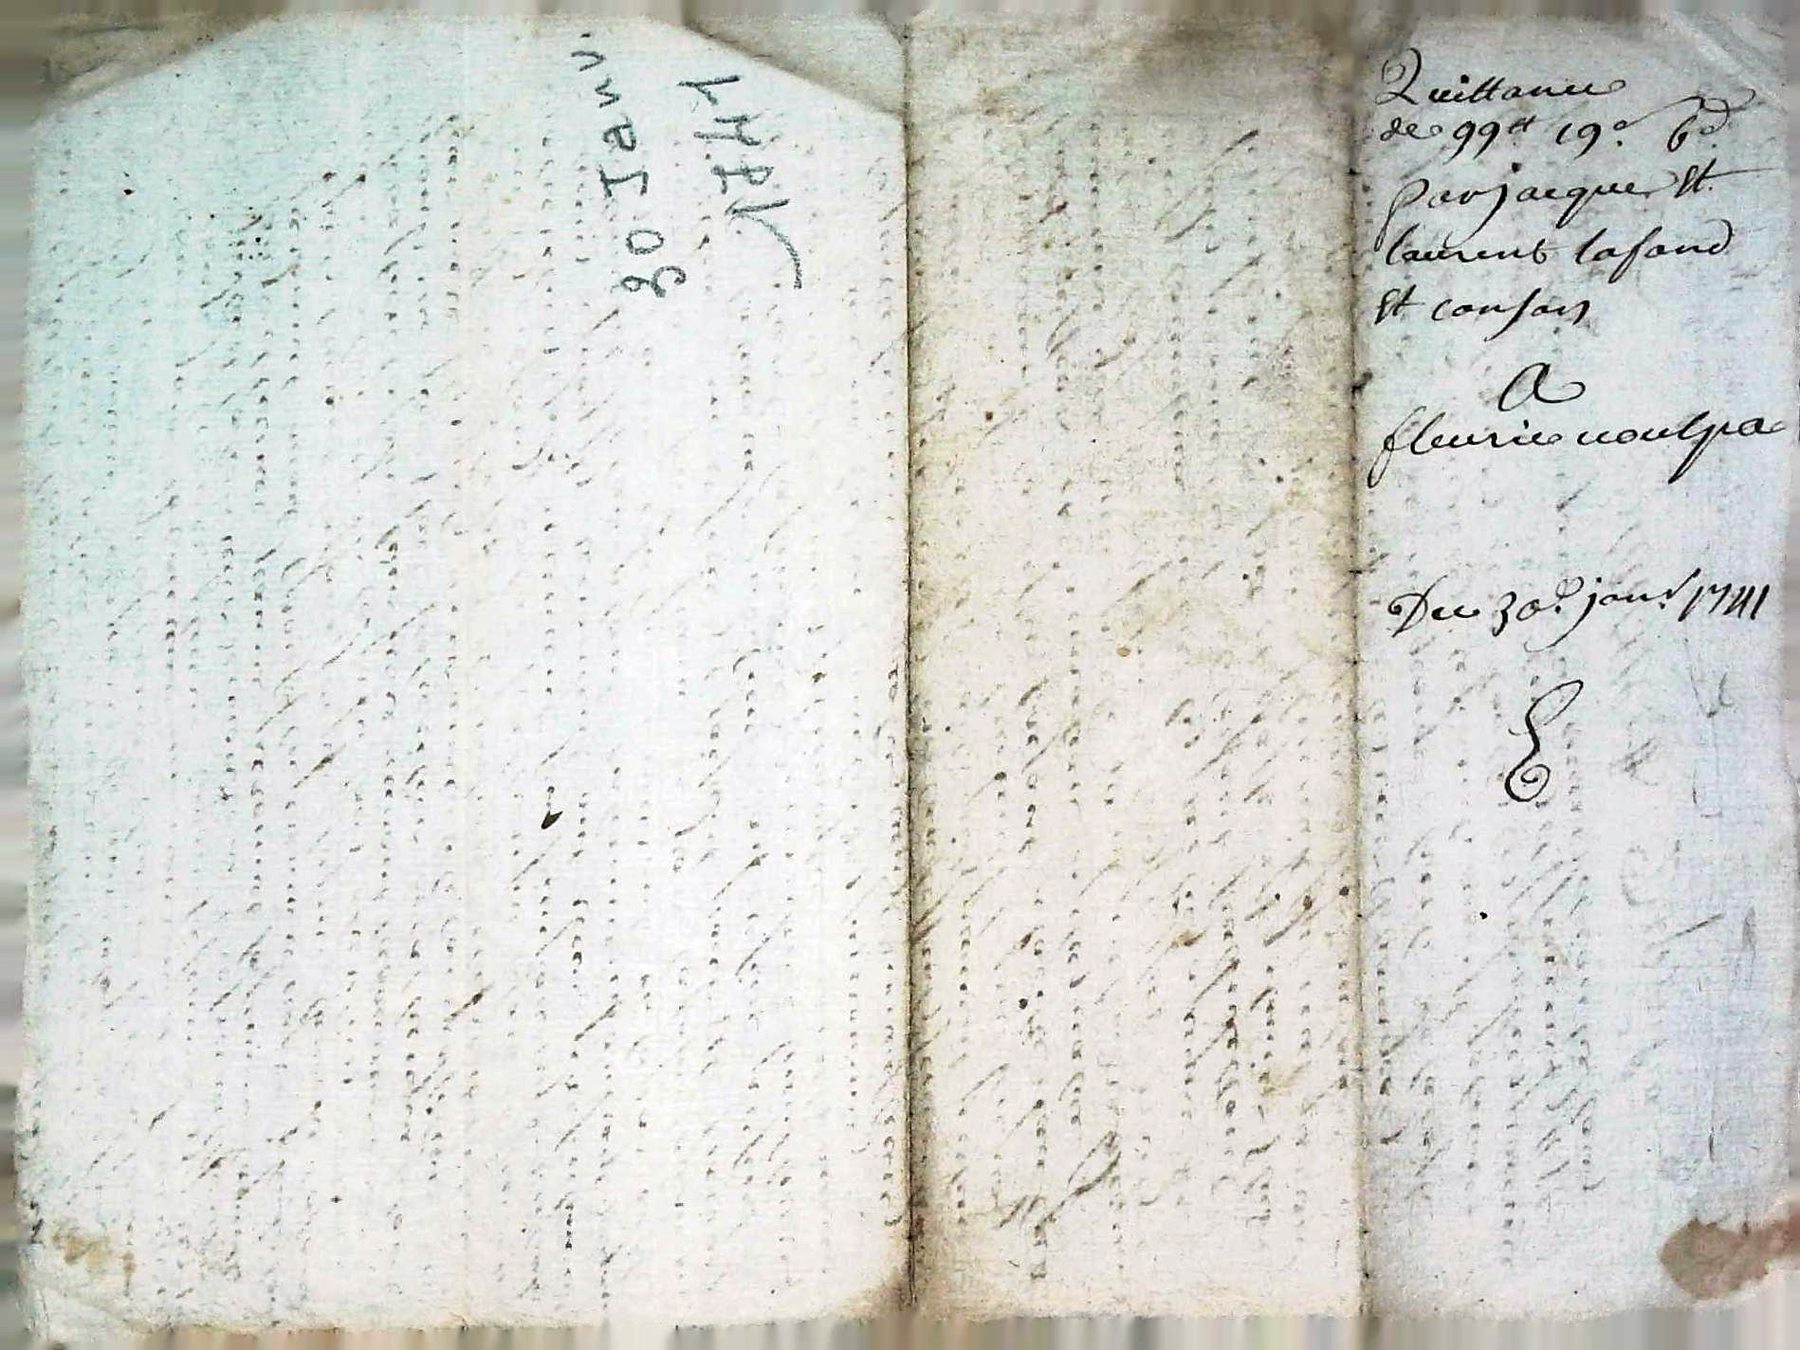 30 Janv.
1741
Quittance
de 99tt 19s 6d
par jacque et
laurent lafond
et consors
A
fleurie coulpa
Du 30e janr 1741